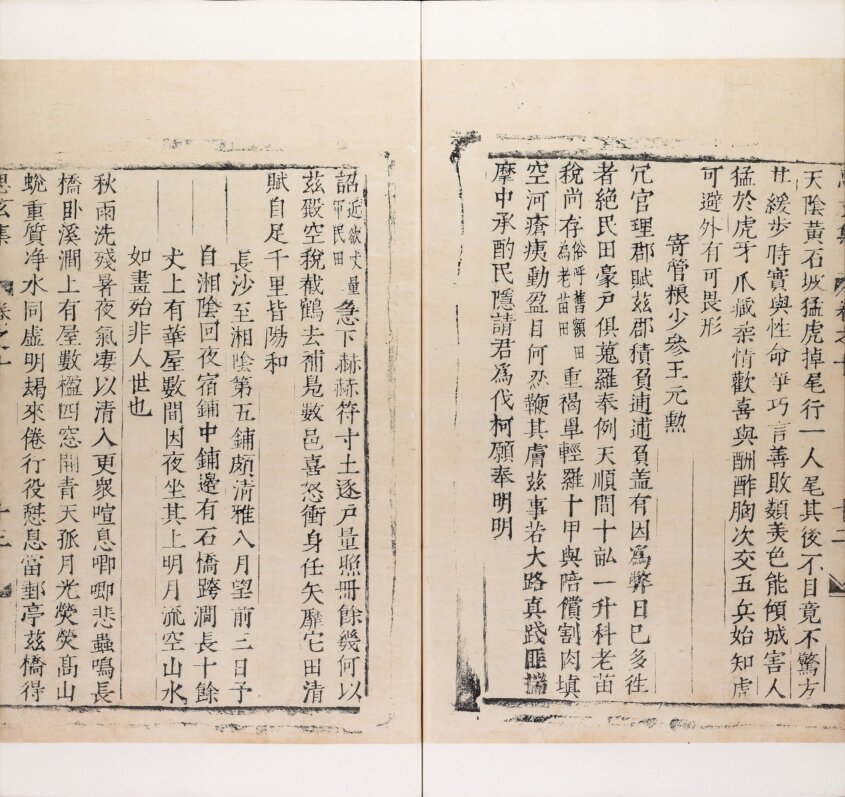 天陰黃石坡猛虎掉尾行一人尾其後不目竟不驚方
其緩步時實與性命爭巧言善敗類美色能傾城害人
猛於虎牙爪藏柔情歡喜與酬酢胸次交五兵始知虎
可避外有可畏形
寄管粮少參王元勲
冗官理郡賦茲郡積負逋逋負盖有因為弊日已多徃
者絶民田豪戸俱蒐羅奉例天順間十畆一升科老苗
稅尚存俗呼舊額田為老苗田重褐單輕羅十甲與陪償割肉塡
空河瘡痍動盈目何忍鞭其膚茲事若大路真踐匪
摩中承酌民隱請君為伐柯願奉明明
詔近欲丈量軍民田急下赫赫符寸土逐戸量照冊餘幾何以
茲毀空稅截鶴去補鳬數邑喜怒衝身任矢靡它田清
賦自足千里皆陽和
長沙至湘陰第五鋪頗清雅八月望前三日予
自湘陰回夜宿鋪中鋪邊有石橋跨澗長十餘
丈上有華屋數間因夜坐其上明月流空山水
如畫殆非人世也
秋雨洗殘暑夜氣凄以清入更衆喧息喞喞悲蟲鳴長
橋卧溪澗上有屋數楹四窓開青天孤月光熒熒髙山
蛻重質凈水同虛明朅來倦行役憇息當郵亭茲橋得
思玄集
卷之十
十二